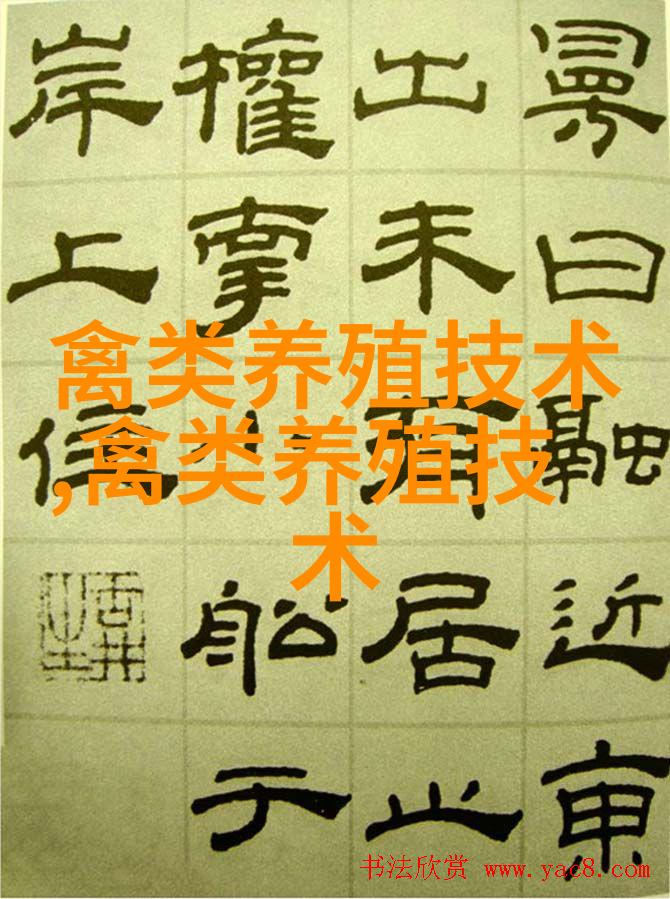 曰融近東
出未有居止
權牽小船于
岸上住
禽类养殖技术
,禽类养殖技
术
书法欣赏 www.yac8.com